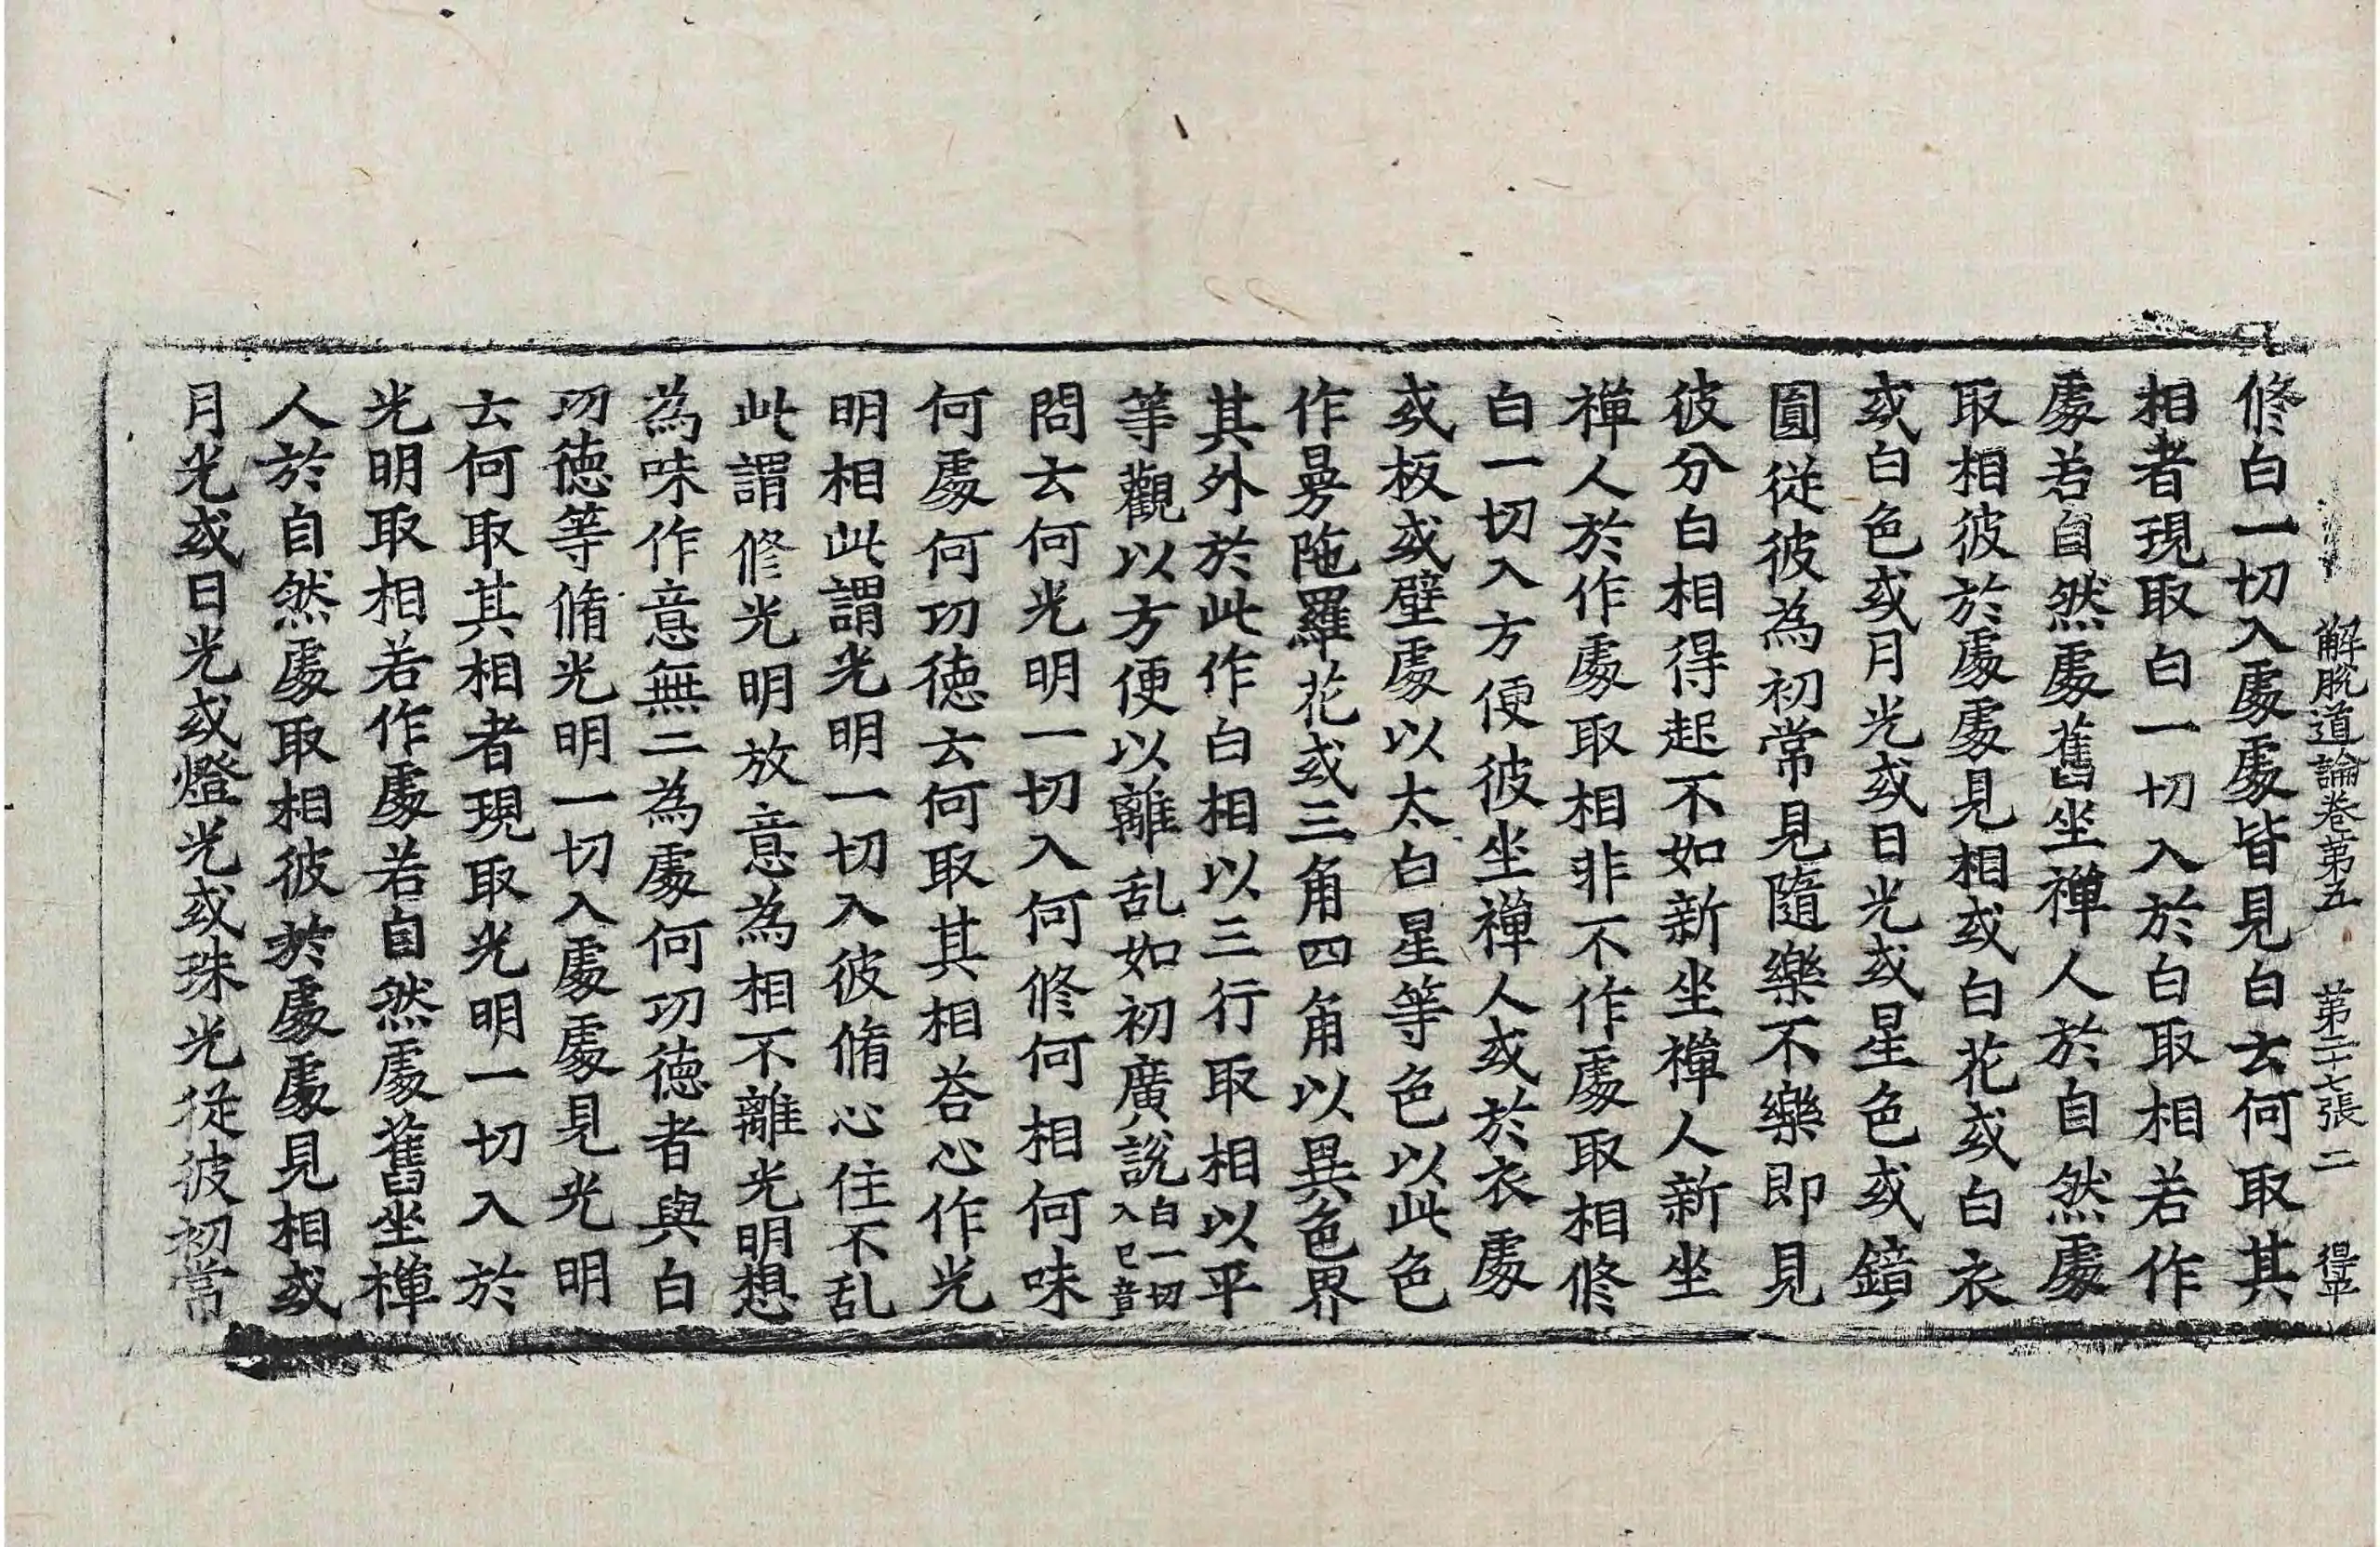 解脫道論卷第五　第二十七張　二　得平
修白一切入處處皆見白云何取其
相者現取白一切入於白取相若作
處若自然處舊坐禪人於自然處
取相彼於處處見相或白花或白衣
或白色或月光或日光或星色或鏡
圓從彼為初常見隨樂不樂即見
彼分白相得起不如新坐禪人新坐
禪人於作處取相非不作處取相修
白一切入方便彼坐禪人或於衣處
或板或壁處以太白星等色以此色
作曼陁羅花或三角四角以異色界
其外於此作白相以三行取相以平
等觀以方便以離乱如初廣說白一切入已音
問云何光明一切入何修何相何味
何處何功德云何取其相荅心作光
明相此謂光明一切入彼脩心住不乱
此謂修光明放意為相不離光明想
為味作意無二為處何功德者與白
功德等脩光明一切入處處見光明
云何取其相者現取光明一切入於
光明取相若作處若自然處舊坐禪
人於自然處取相彼於處處見相或
月光或日光或燈光或珠光從彼初常